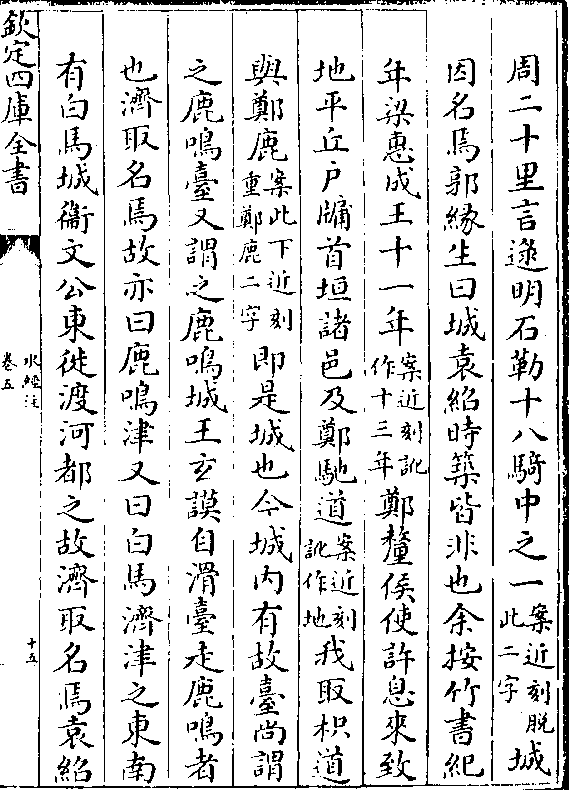 周二十里言逯明石勒十八騎中之一案近刻脱此二字城
因名焉郭緣生曰城袁紹時築皆非也余按竹書紀
年梁惠成王十一年案近刻訛作十三年鄭釐侯使許息來致
地平丘户牖首垣諸邑及鄭馳道案近刻訛作地我取枳道
與鄭鹿案此下近刻重鄭鹿二字即是城也今城内有故臺尚謂
之鹿鳴臺又謂之鹿鳴城王玄謨自滑臺走鹿鳴者
也濟取名焉故亦曰鹿鳴津又曰白馬濟津之東南
有白馬城衞文公東徙渡河都之故濟取名焉袁紹
欽定四庫全書
水經注
卷五
十五